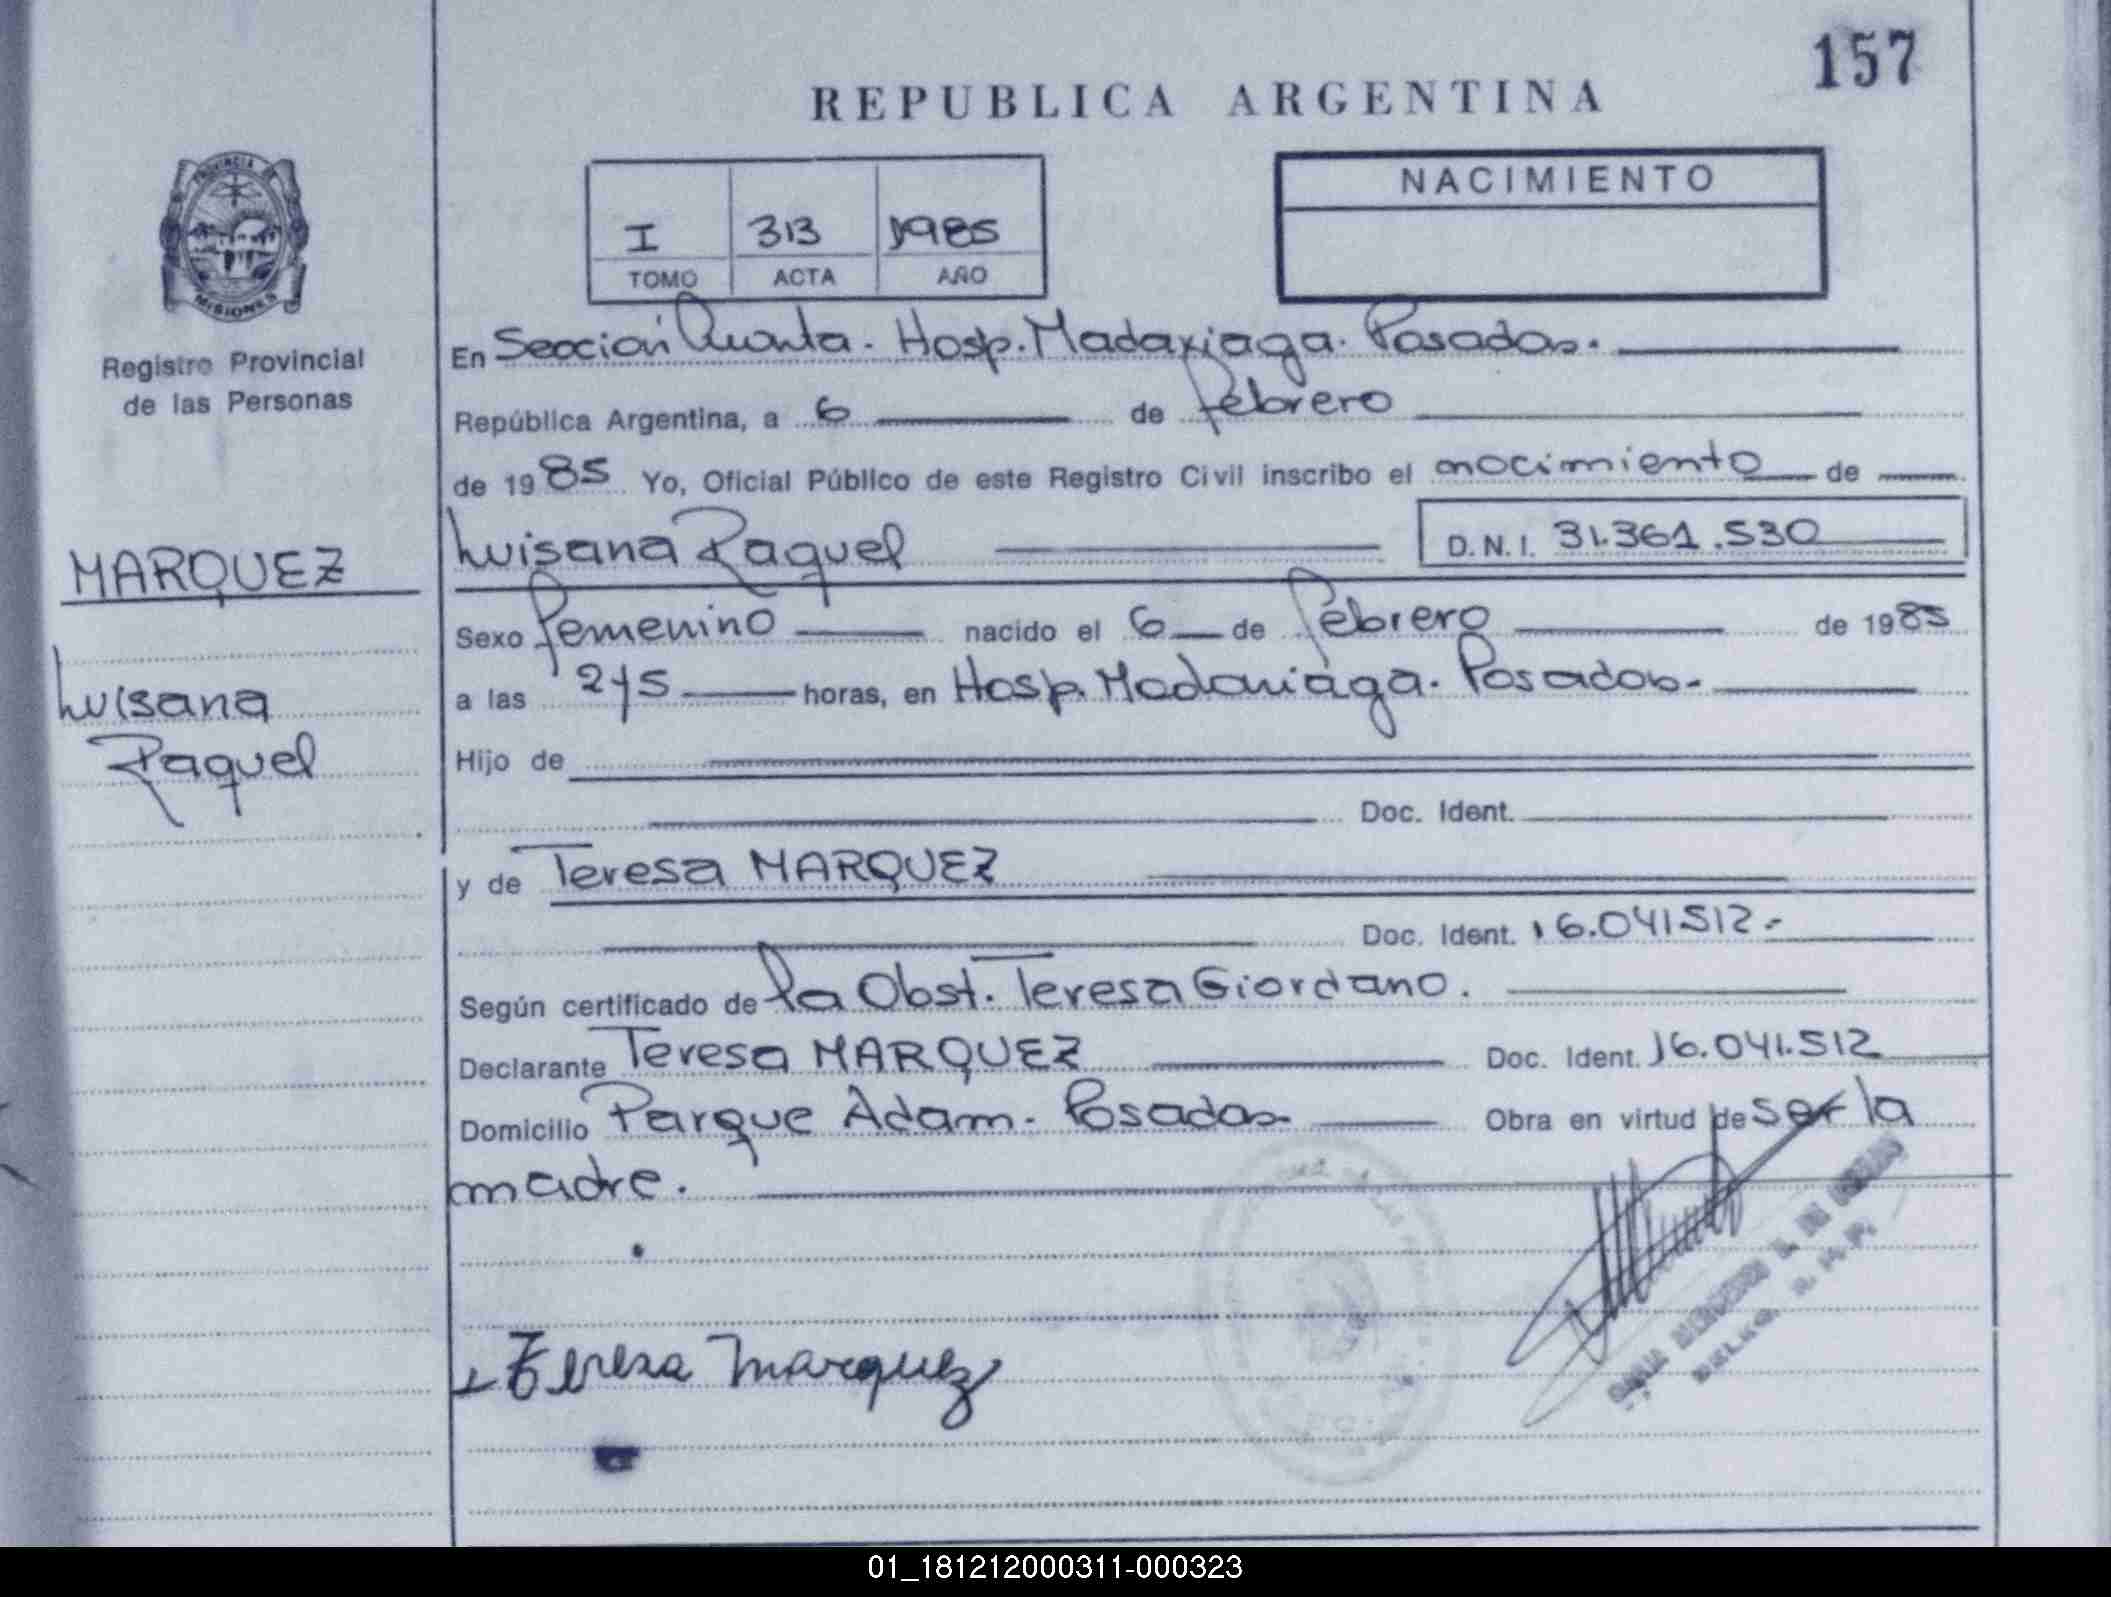 157
REPUBLICA ARGENTINA
PROVINCIA DE
MISIONES
Registro Provincial
de las Personas
I 313 1985
TOMO ACTA AÑO
NACIMIENTO
En Seccion Quinta. Hosp. Madariaga. Posadas.
República Argentina, a 6 de febrero
de 1985 Yo, Oficial Público de este Registro Civil inscribo el nacimiento de
Luisana Raquel D.N.I. 31.361.530
MARQUEZ
Luisana
Raquel
Sexo femenino nacido el 6 de febrero de 1985
a las horas, en Hosp. Madariaga. Posadas.
Hijo de
Doc. Ident.
y de Teresa MARQUEZ
Doc. Ident. 16.041512.-
Según certificado de la Obst. Teresa Giordano.
Declarante Teresa MARQUEZ Doc. Ident. 16.041.512
Domicilio Parque Adam. Posadas Obra en virtud de ser la
madre.
Teresa Marquez
01_181212000311-000323